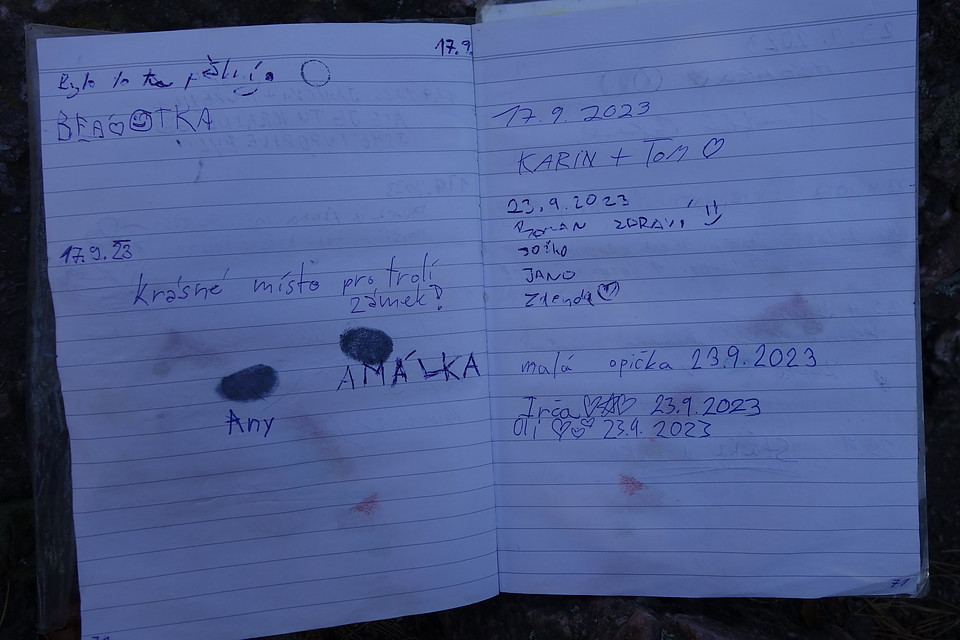 17.9.
Bylo to tu pěkný
17.9.23
Krásné místo pro trolí
zámek!
AMÁLKA
Any
17.9.2023
KARIN + TOM ♡
23.9.2023
ROMAN ZDRAVÍ !!
JOŽKO
JANO
Zdenda ♡
malá opička 23.9.2023
Irča ♡♡ 23.9.2023
Oli ♡♡ 23.9.2023
71